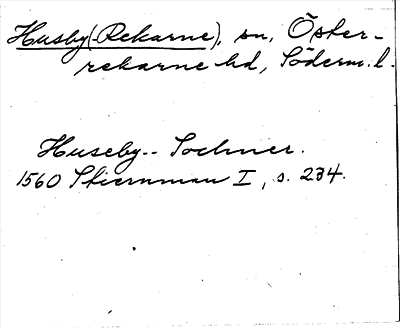 Husby(-Rekarne), sn, Öster-
rekarne hd, Söderm. l.
Huseby-- Sochner.
1560 Stiernman I, s. 234.